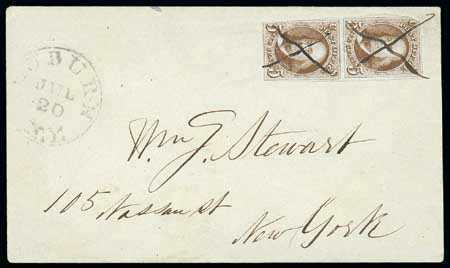 AUBURN
JUL
20
N.Y.
Wm J. Stewart
105 Nassau st
New York